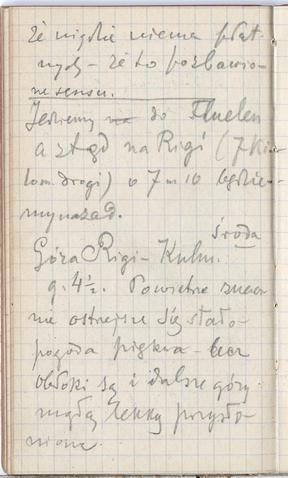 że nigdzie niema prat-
nych – że to pozbawio-
ne sensu.
Jedziemy do Fluelen
a ztąd na Rigi (7 kilo-
lom. drogi) o 7 m 10 będzie-
my nazad.
środa
Góra Rigi-Kulm.
g. 4½. Powietrze znacz-
nie ostrzejsze się stało-
pogoda piękna – lecz
obłoki są i dalsze góry
mgłą lekką przysło-
nione.